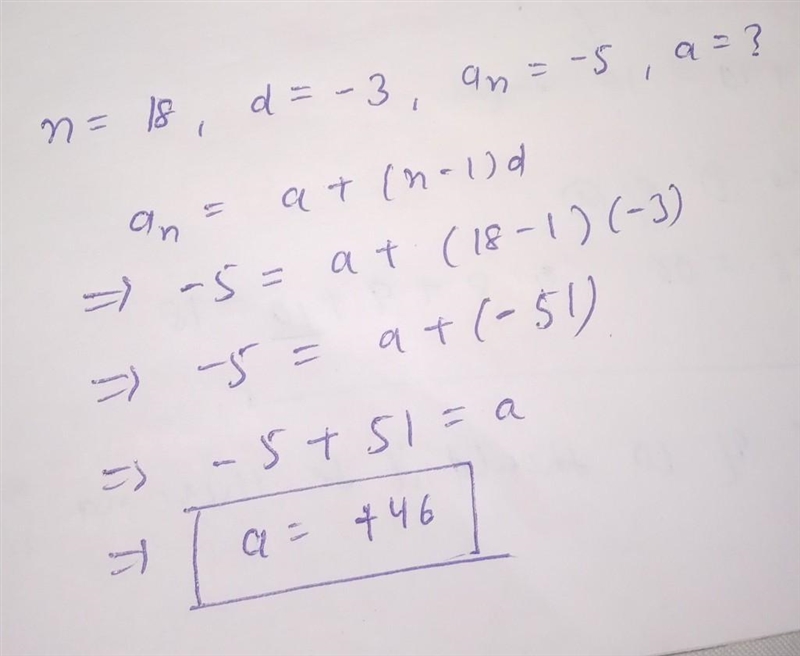 n = 18, d = -3, an = -5, a = ?
an = a + (n-1)d
⇒ -5 = a + (18-1)(-3)
⇒ -5 = a + (-51)
⇒ -5 + 51 = a
⇒ a = +46